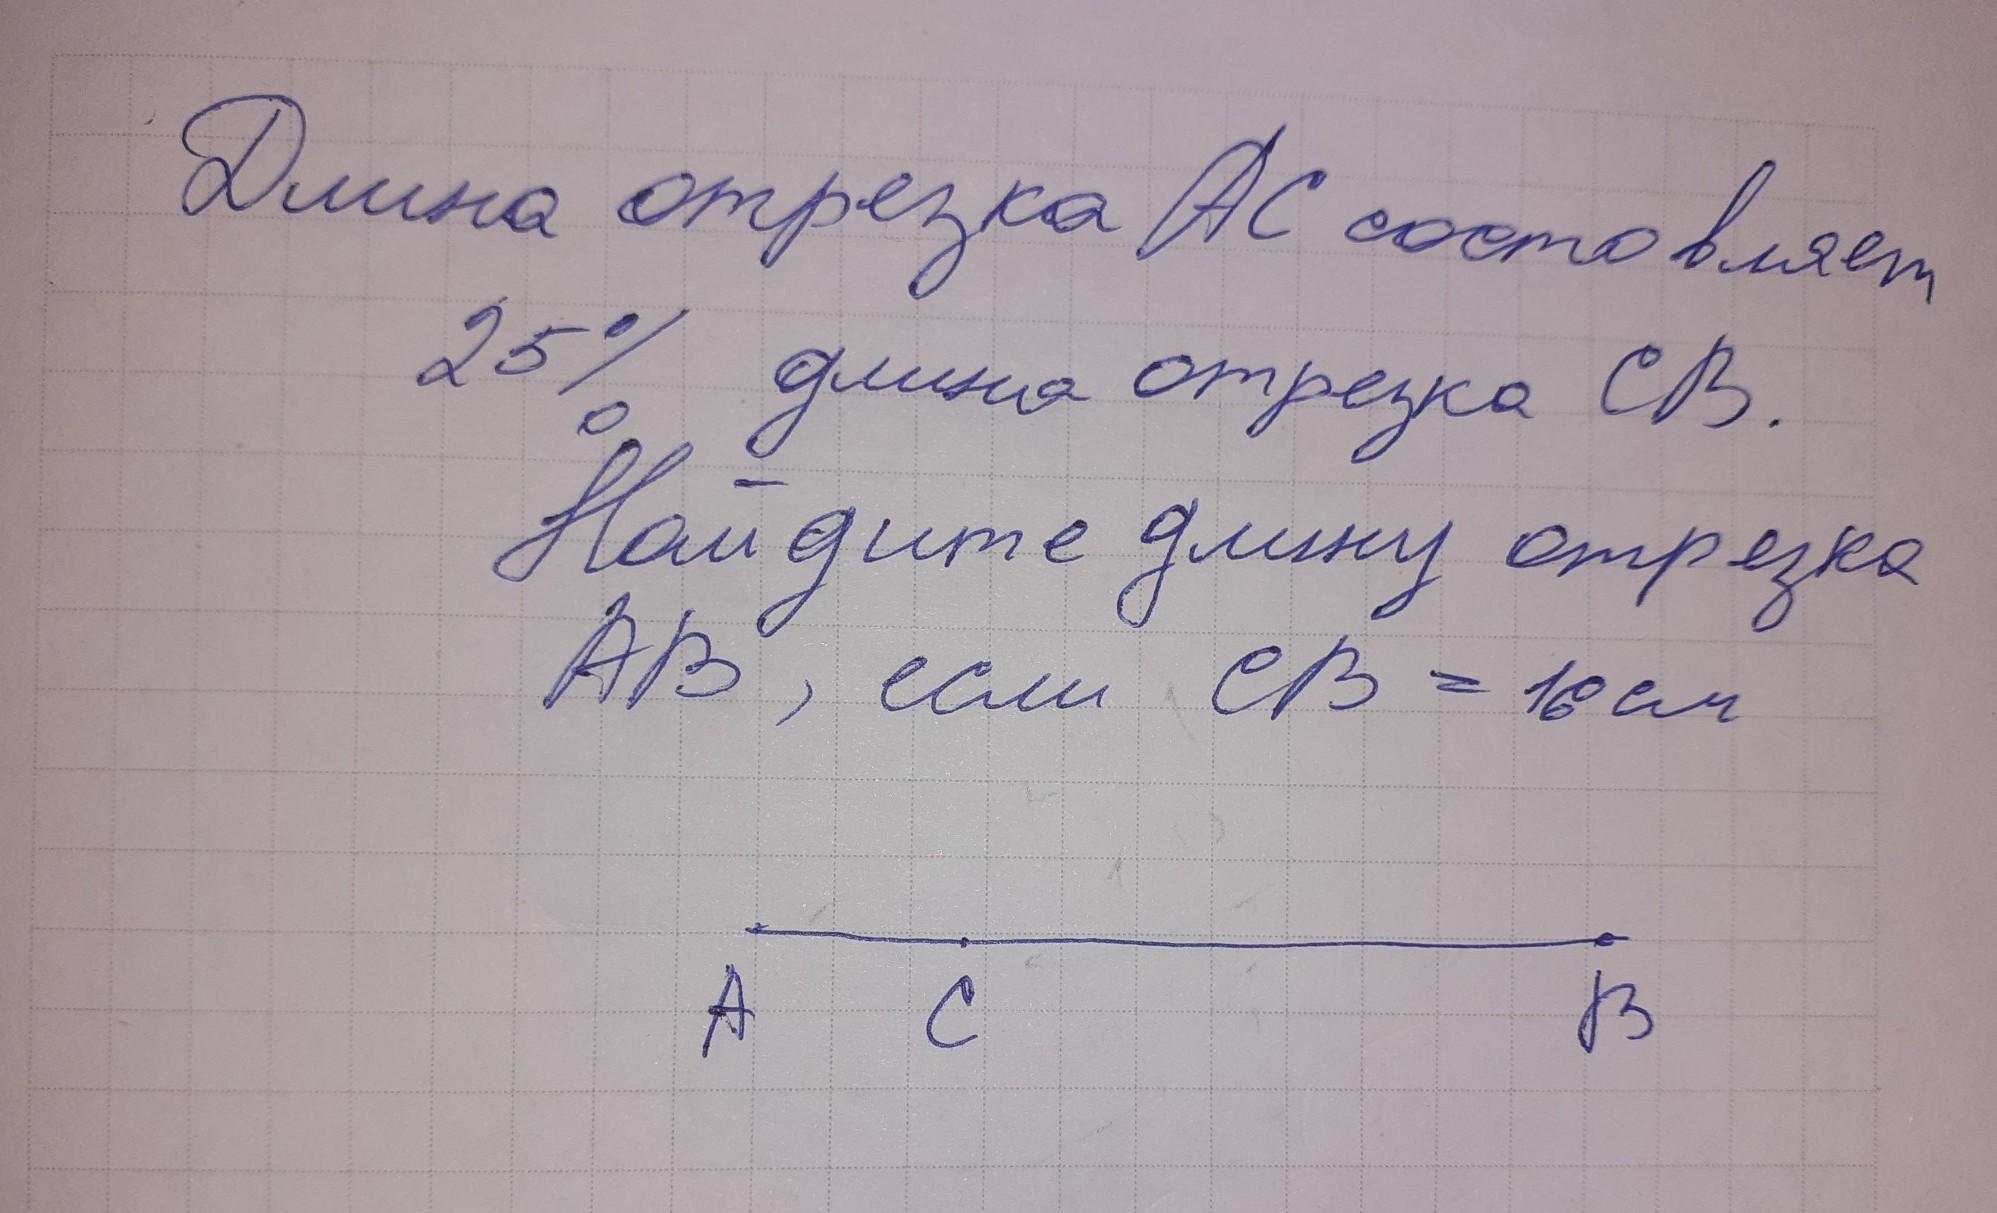 Длина отрезка AC состовляет
25% длина отрезка CB.
Найдите длину отрезка
AB, если CB = 16 см
A C B